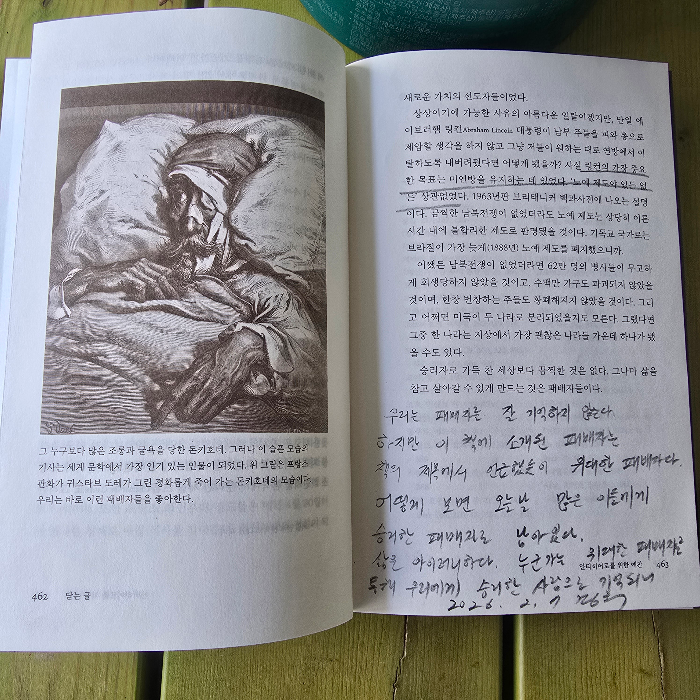 그 누구보다 많은 조롱과 굴욕을 당한 돈키호테. 그러나 이 슬픈 모습의
기사는 세계 문학에서 가장 인기 있는 인물이 되었다. 위 그림은 프랑스
판화가 귀스타브 도레가 그린 평화롭게 죽어 가는 돈키호테의 모습이다.
우리는 바로 이런 패배자들을 좋아한다.
462 닫는 글
새로운 가치의 선도자들이었다.
상상이기에 가능한 사유의 아름다운 일탈이겠지만, 만일 에
이브러햄 링컨Abraham Lincoln 대통령이 남부 주들을 피와 총으로
제압할 생각을 하지 않고 그냥 저들이 원하는 대로 연방에서 이
탈하도록 내버려뒀다면 어떻게 됐을까? 사실 링컨의 가장 중요
한 목표는 미연방을 유지하는 데 있었다. '노예 제도야 있든 없
든' 상관없었다. 1963년판 브리태니커 백과사전에 나오는 설명
이다. 끔찍한 남북전쟁이 없었더라도 노예 제도는 상당히 이른
시간 내에 불합리한 제도로 판명됐을 것이다. 기독교 국가로는
브라질이 가장 늦게(1888년) 노예 제도를 폐지했으니까.
어쨌든 남북전쟁이 없었더라면 62만 명의 병사들이 무고하
게 희생당하지 않았을 것이고, 수백만 가구도 파괴되지 않았을
것이며, 한창 번창하는 주들도 황폐해지지 않았을 것이다. 그리
고 어쩌면 미국이 두 나라로 분리되었을지도 모른다. 그랬다면
그중 한 나라는 지상에서 가장 괜찮은 나라들 가운데 하나가 됐
을 수도 있다.
승리자로 가득 찬 세상보다 끔찍한 것은 없다. 그나마 삶을
참고 살아갈 수 있게 만드는 것은 패배자들이다.
우리는 패배자를 잘 기억하지 않는다.
하지만 이 책에 소개된 패배자는
책의 제목에서 언급했듯이 위대한 패배자다.
어떻게 보면 오늘날 많은 이들에게
승리한 패배자로 남아있다.
삶은 아이러니하다. 누군가는 위대한 패배자로
안티히어로를 위한 변론 463
통해 우리에게 승리한 사람으로 기억되니
2026. 2.